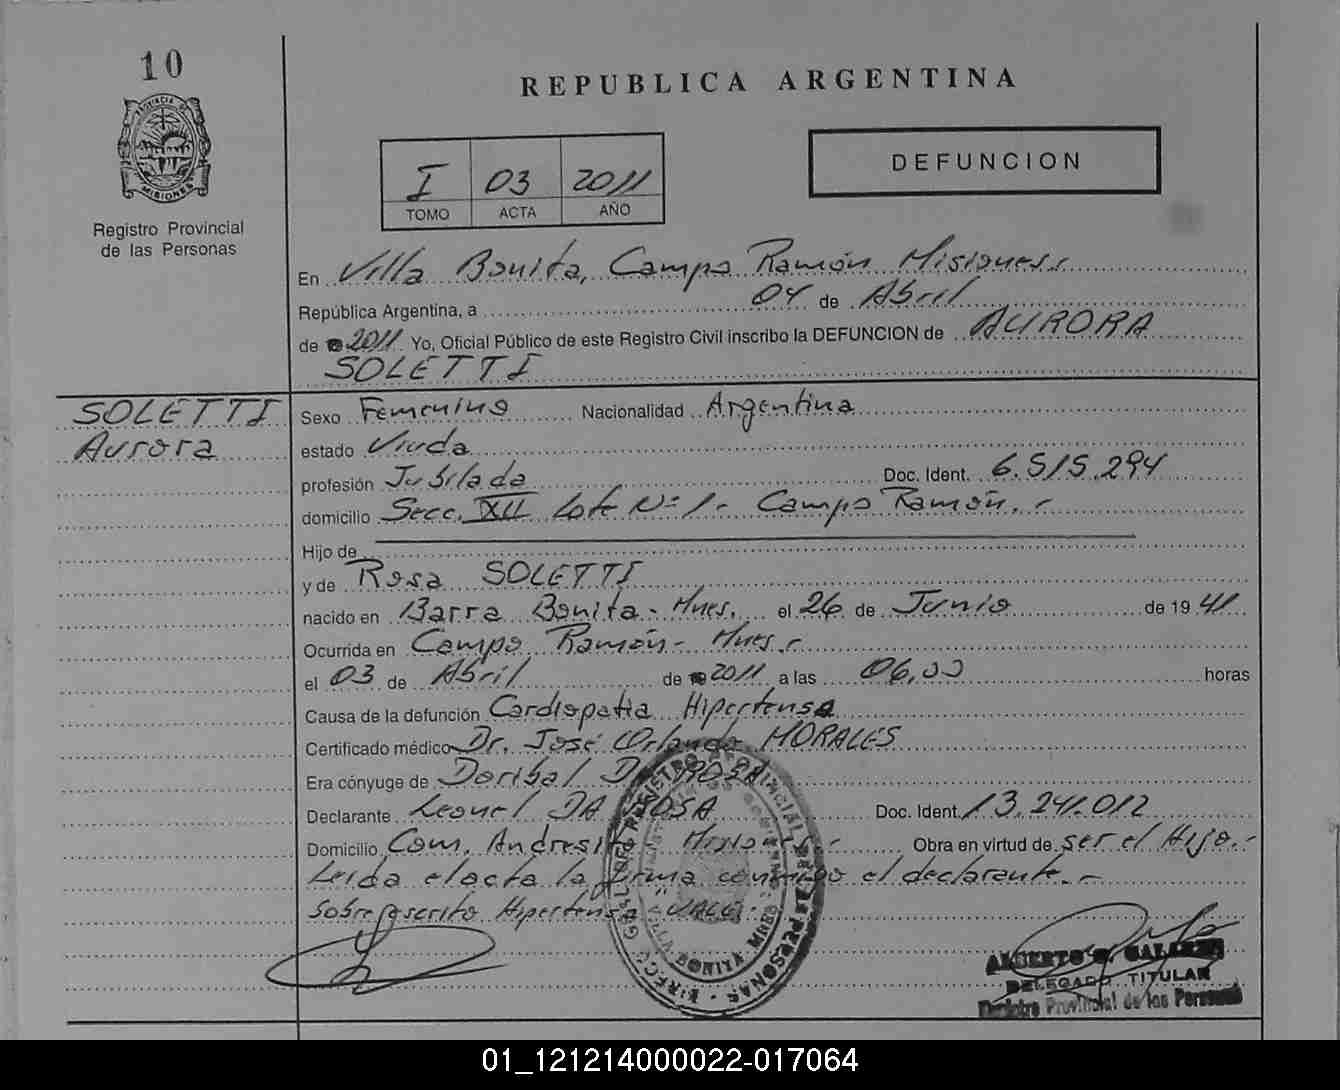 10
PROVINCIA DE
MISIONES
Registro Provincial
de las Personas
REPUBLICA ARGENTINA
I 03 2011
TOMO ACTA AÑO
DEFUNCION
En Villa Bonita, Campo Ramón Misiones.
República Argentina, a 04 de Abril
de 2011 Yo, Oficial Público de este Registro Civil inscribo la DEFUNCION de AURORA
SOLETTI
SOLETTI
Aurora
Sexo Femenino Nacionalidad Argentina
estado Viuda
profesión Jubilada Doc. Ident. 6.515.294
domicilio Secc. XII Lote Nº 1- Campo Ramón.-
Hijo de
y de Rosa SOLETTI
nacido en Barra Bonita - Mnes. el 26 de Junio de 19 41
Ocurrida en Campo Ramón - Mnes.-
el 03 de Abril de 2011 a las 06,00 horas
Causa de la defunción Cardiopatia Hipertensa
Certificado médico Dr. José Orlando MORALES
Era cónyuge de Doribal DA ROSA
Declarante Leonel DA ROSA Doc. Ident. 13.241.012
Domicilio Com. Andresito Misiones.- Obra en virtud de ser el Hijo.-
Leida el acta la firma conmigo el declarante.-
Sobreescrito Hipertensa "VALE".
REGISTRO PROVINCIAL DE LAS PERSONAS
VILLA BONITA MNES
DELEGADO TITULAR
Registro Provincial de las Personas
01_121214000022-017064